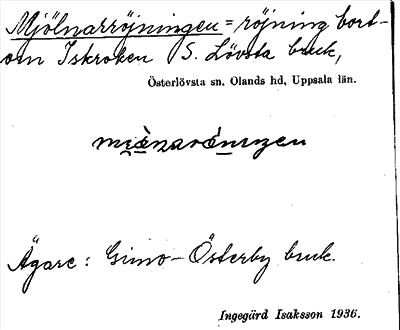 Mjölnarröjningen = röjning bort-
om Iskroken S. Lövsta bruk,
Österlövsta sn. Olands hd, Uppsala län.
Ägare: Gimo-Österby bruk.
Ingegärd Isaksson 1936.